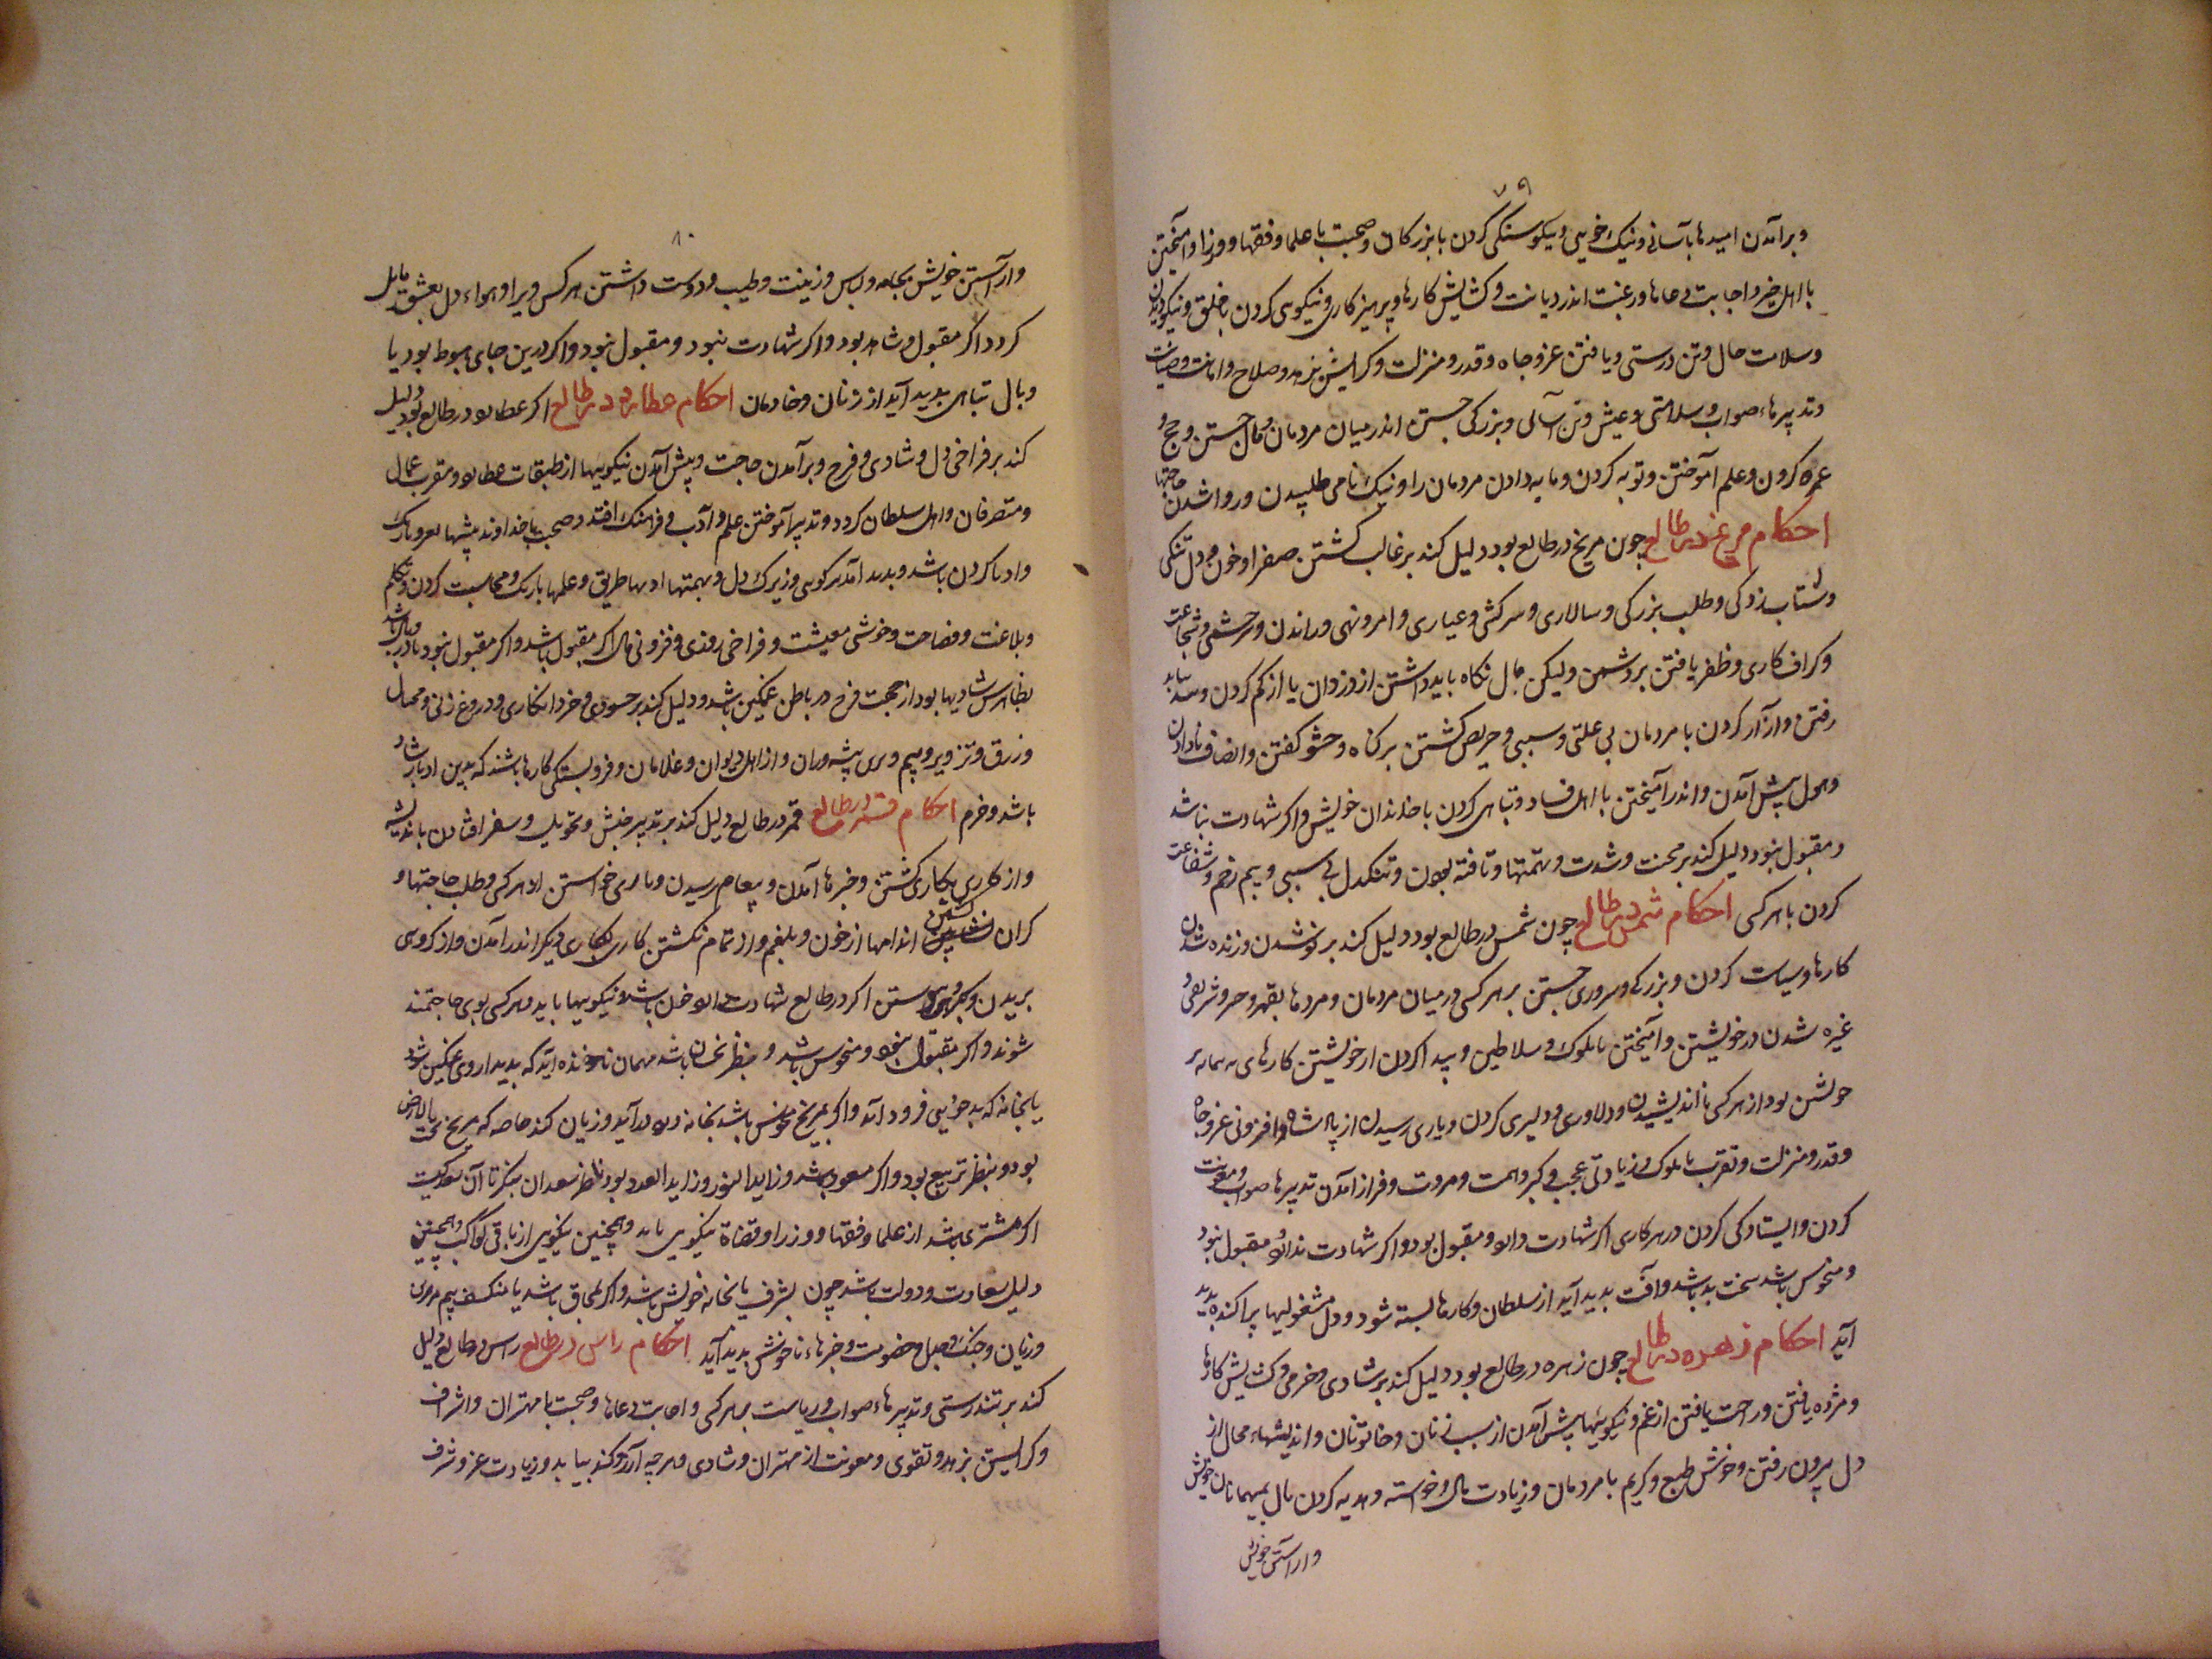 ۷۹
وبرآمدن امیدها بآسانی ونیک خویی وپیکوستگی کردن با بزرکان وصحبت با علما وفقها ووزرا وآمیختن
با اهل خیر واجابت دعاها ورغبت اندر دیانت وکشایش کارها وپرهیز کاری ونیکویی کردن با خلق ونیکو دیدن
وسلامت حال وتن درستی ویافتن عز وجاه وقدر ومنزلت وکرایش بزهد وصلاح وامانت وصیانت
وتدبیرهاء صواب وسلامتی وعیش وتن آسانی وبزرکی جستن اندر میان مردمان ومال جستن وحج و
عمره کردن وعلم آموختن وتوبه کردن ومایه دادن مردمان را ونیک نامی طلبیدن وروا شدن حاجتها
احکام مریخ در طالع چون مریخ در طالع بود دلیل کند بر غالب کشتن صفرا وخون ودل تنکی
وشتاب زدکی وطلب بزرکی وسالاری وسرکشی وعیاری وامر ونهی وراندن وشجاعت
وکزاف کاری وظفر یافتن بر دشمن ولیکن مال نکاه باید داشتن از دزدان یا از کم کردن
رفتن وآزار کردن با مردمان بی علتی وسببی وحریص کشتن بر کناه وحشو کفتن وانصاف نادادن
وهول پیش آمدن واندر آمیختن با اهل فساد وتباهی کردن با خاندان خویش واکر شهادت نباشد
ومقبول نبود دلیل کند بر محنت وشدت وتهمتها وتافته بودن وتنکدل بی سببی وبیم زخم وشفاعت
کردن با هر کسی احکام شمس در طالع چون شمس در طالع بود دلیل کند بر نو شدن وزنده شدن
کارها وسیاست کردن وبزرکی وسروری جستن بر هر کسی در میان مردمان ومردها بقهر
غیره شدن در خویشتن وآمیختن با ملوک وسلاطین وپیدا کردن از خویشتن کارهای
خویشتن بود از هر کسی نااندیشیدن ودلاوری ودلیری کردن ویاری رسیدن از پادشاه وافزونی عز وجاه
وقدر ومنزلت وتقرب با ملوک وزیادتی عجب وکبر وهمت ومروت وفراز آمدن تدبیرها صواب ومعونت
کردن وایستادکی کردن در هر کاری اکر شهادت دارد ومقبول بود واکر شهادت ندارد ومقبول نبود
ومنحوس باشد سخت بد باشد وآفت پدید آید از سلطان وکارها بسته شود ودل مشغولیها پراکنده پدید
آید احکام زهره در طالع چون زهره در طالع بود دلیل کند بر شادی وخرمی وکشایش کارها
ومژده یافتن وراحت یافتن از غم ونیکوییها پیش آمدن از سبب زنان وخاتونان واندیشهاء محال از
دل بیرون رفتن وخوش طبع وکریم با مردمان وزیادت مال وخواسته وهدیه کردن مال بمیهمانان خویش
وآراستن خویش
۸۰
وآراستن خویش بجامه ولباس وزینت وطیب ودوست داشتن هر کس ویرا وهواء دل بعشق مایل
کردد اکر مقبول وشاهد بود واکر شهادت نبود ومقبول نبود واکر درین جای هبوط بود یا
وبال تباهی پدید آید از زنان وخادمان احکام عطارد در طالع اکر عطارد در طالع بود دلیل
کند بر فراخی دل وشادی وفرح وبرآمدن حاجت وپیش آمدن نیکوییها از طبقات عطارد ومقرب عمال
ومتصرفان واهل سلطان کردد وتدبیر آموختن علم وآداب وفرهنک افتد وصحبت با خداوند پیشها
وادبا کردن باشد وپدید آمدن وزیرک دل وعلمها باریک ومحاسبت کردن وتکلم
وبلاغت وفصاحت وخوشی معیشت وفراخی روزی وفزونی مال اکر مقبول باشد واکر مقبول نبود
بظاهر شادیها بود از جهت فرح در باطن غمکین باشد ودلیل کند بر حسودی وخرد انکاری ودروغ زنی ومحال
وزرق وتزویر وبیم پیشه وران واز اهل دیوان وغلامان وفروبستکی کارها باشد که بدین
باشد وخرم احکام قمر در طالع قمر در طالع دلیل کند بر تدبیر جنبش وتحویل وسفر افتادن باندیشه
واز کاری بکاری کشتن وخبرها آمدن وپیغام رسیدن ویاری خواستن از هر کسی وطلب حاجتها و
کران کشتن اندامها از خون وبلغم واز تمام نکشتن کاری بکاری دیکر اندر آمدن واز کروهی
بریدن وبکروهی اکر در طالع شهادت دارد باشد ونیکوییها یابد وهر کسی بوی حاجتمند
شوند واکر مقبول نبود ومنحوس باشد وبنظر نحسان باشد مهمان ناخوانده آید که بدیدار وی غمکین شود
یا بخانه که بدخویی فرود آید واکر بمریخ منحوس باشد بخانه دزد درآید وزیان کند خاصه که مریخ تحت الارض
بود وبنظر تربیع بود واکر مسعود باشد وزاید النور وزاید العدد بود بنظر سعدان بنکر تا آن سعد کیست
اکر مشتری باشد از علما وفقها ووزرا وقضاة نیکویی یابد وهمچنین نیکویی از باقی کواکب وهمچنین
دلیل سعادت ودولت باشد چون بشرف یا بخانه خویش باشد واکر بمحاق باشد یا منکسف بیم
وزیان وجنک وجدل وخصومت وخبرهاء ناخوش پدید آید احکام راس در طالع راس در طالع دلیل
کند بر تندرستی وتدبیرهاء صواب وریاست بر هر کسی واجابت دعاها وصحبت با مهتران واشراف
وکرایستن بزهد وتقوی ومعونت از مهتران وشادی وهر چه آرزو کند بیابد وزیادت عز وشرف